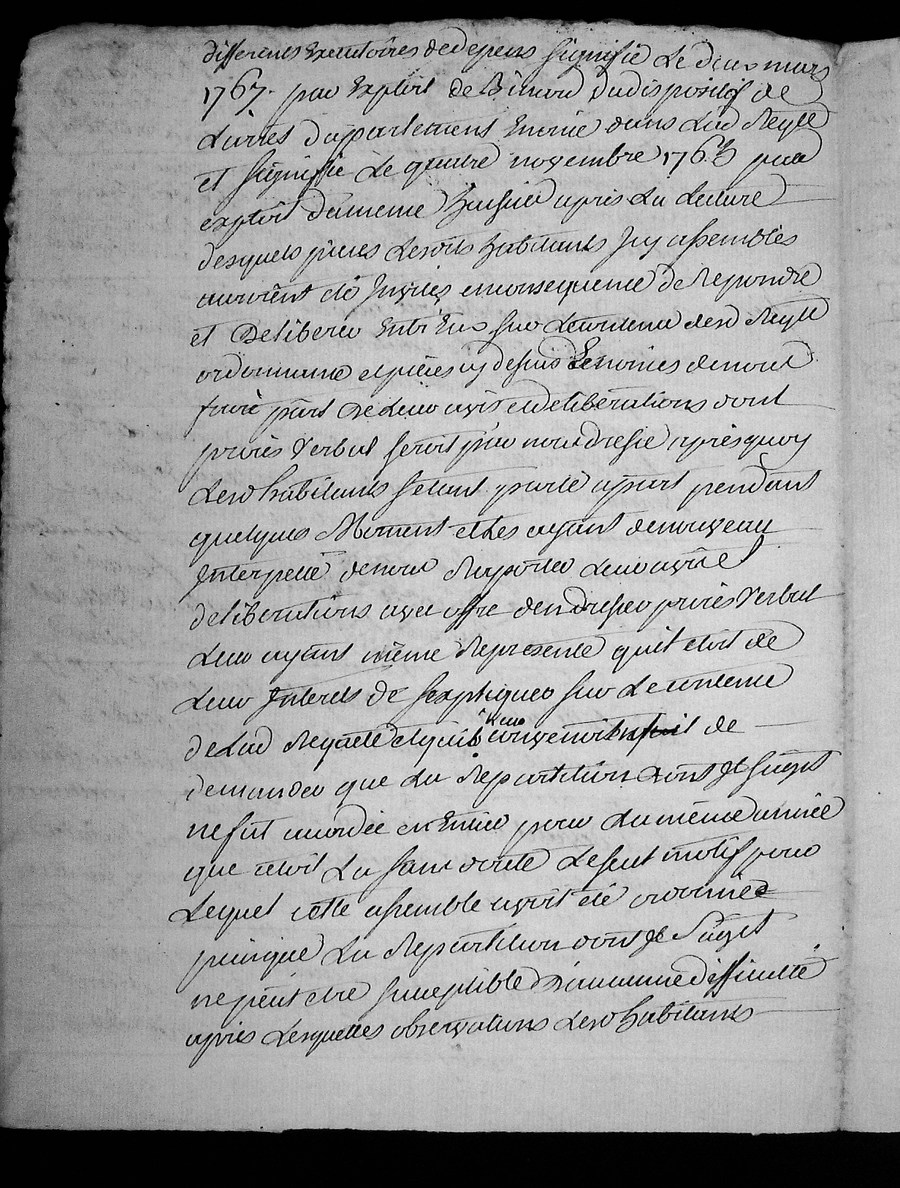 differents executoires de depens signifié Le deux mars
1767. par Exploit de Binard du dispositif de
L'arrest d'apartement Enoncé dans Lad Req^te
et signiffié Le quatre novembre 1763 par
exploit du meme huissier apres La Lecture
desquels pieces Lesdits habitants Icy assemblés
auroient été Invités en consequence de Repondre
et Deliberer Entr'Eux sur Le contenu desd Req^te
ordonnance et pieces cy dessus Enoncées de nous
faire part de Leur avis et deliberations dont
procès verbal seroit par nous dressé après quoy
Lesd habitants setant parlé apart pendant
quelques Moment et Les ayant de nouveau
Interpellé de nous Raporter Leur avis et
deliberations avec offre d'en dresser procès verbal
Leur ayant même Representé qu'il etoit de
Leur Interets de s'expliquer sur Le contenu
de Lad Requete et quil Leur convenoit de
demander que La Repartition dont Il sagit
ne fut accordée en Entier pour La même année
que cétoit La sans doute Le seul motif pour
Lequel cette assemblé avoit été ordonnée
puisque La Repartition dont Il s'agit
ne peut etre susceptible d'aucune difficulté
après Lesquelles observations Lesd habitants